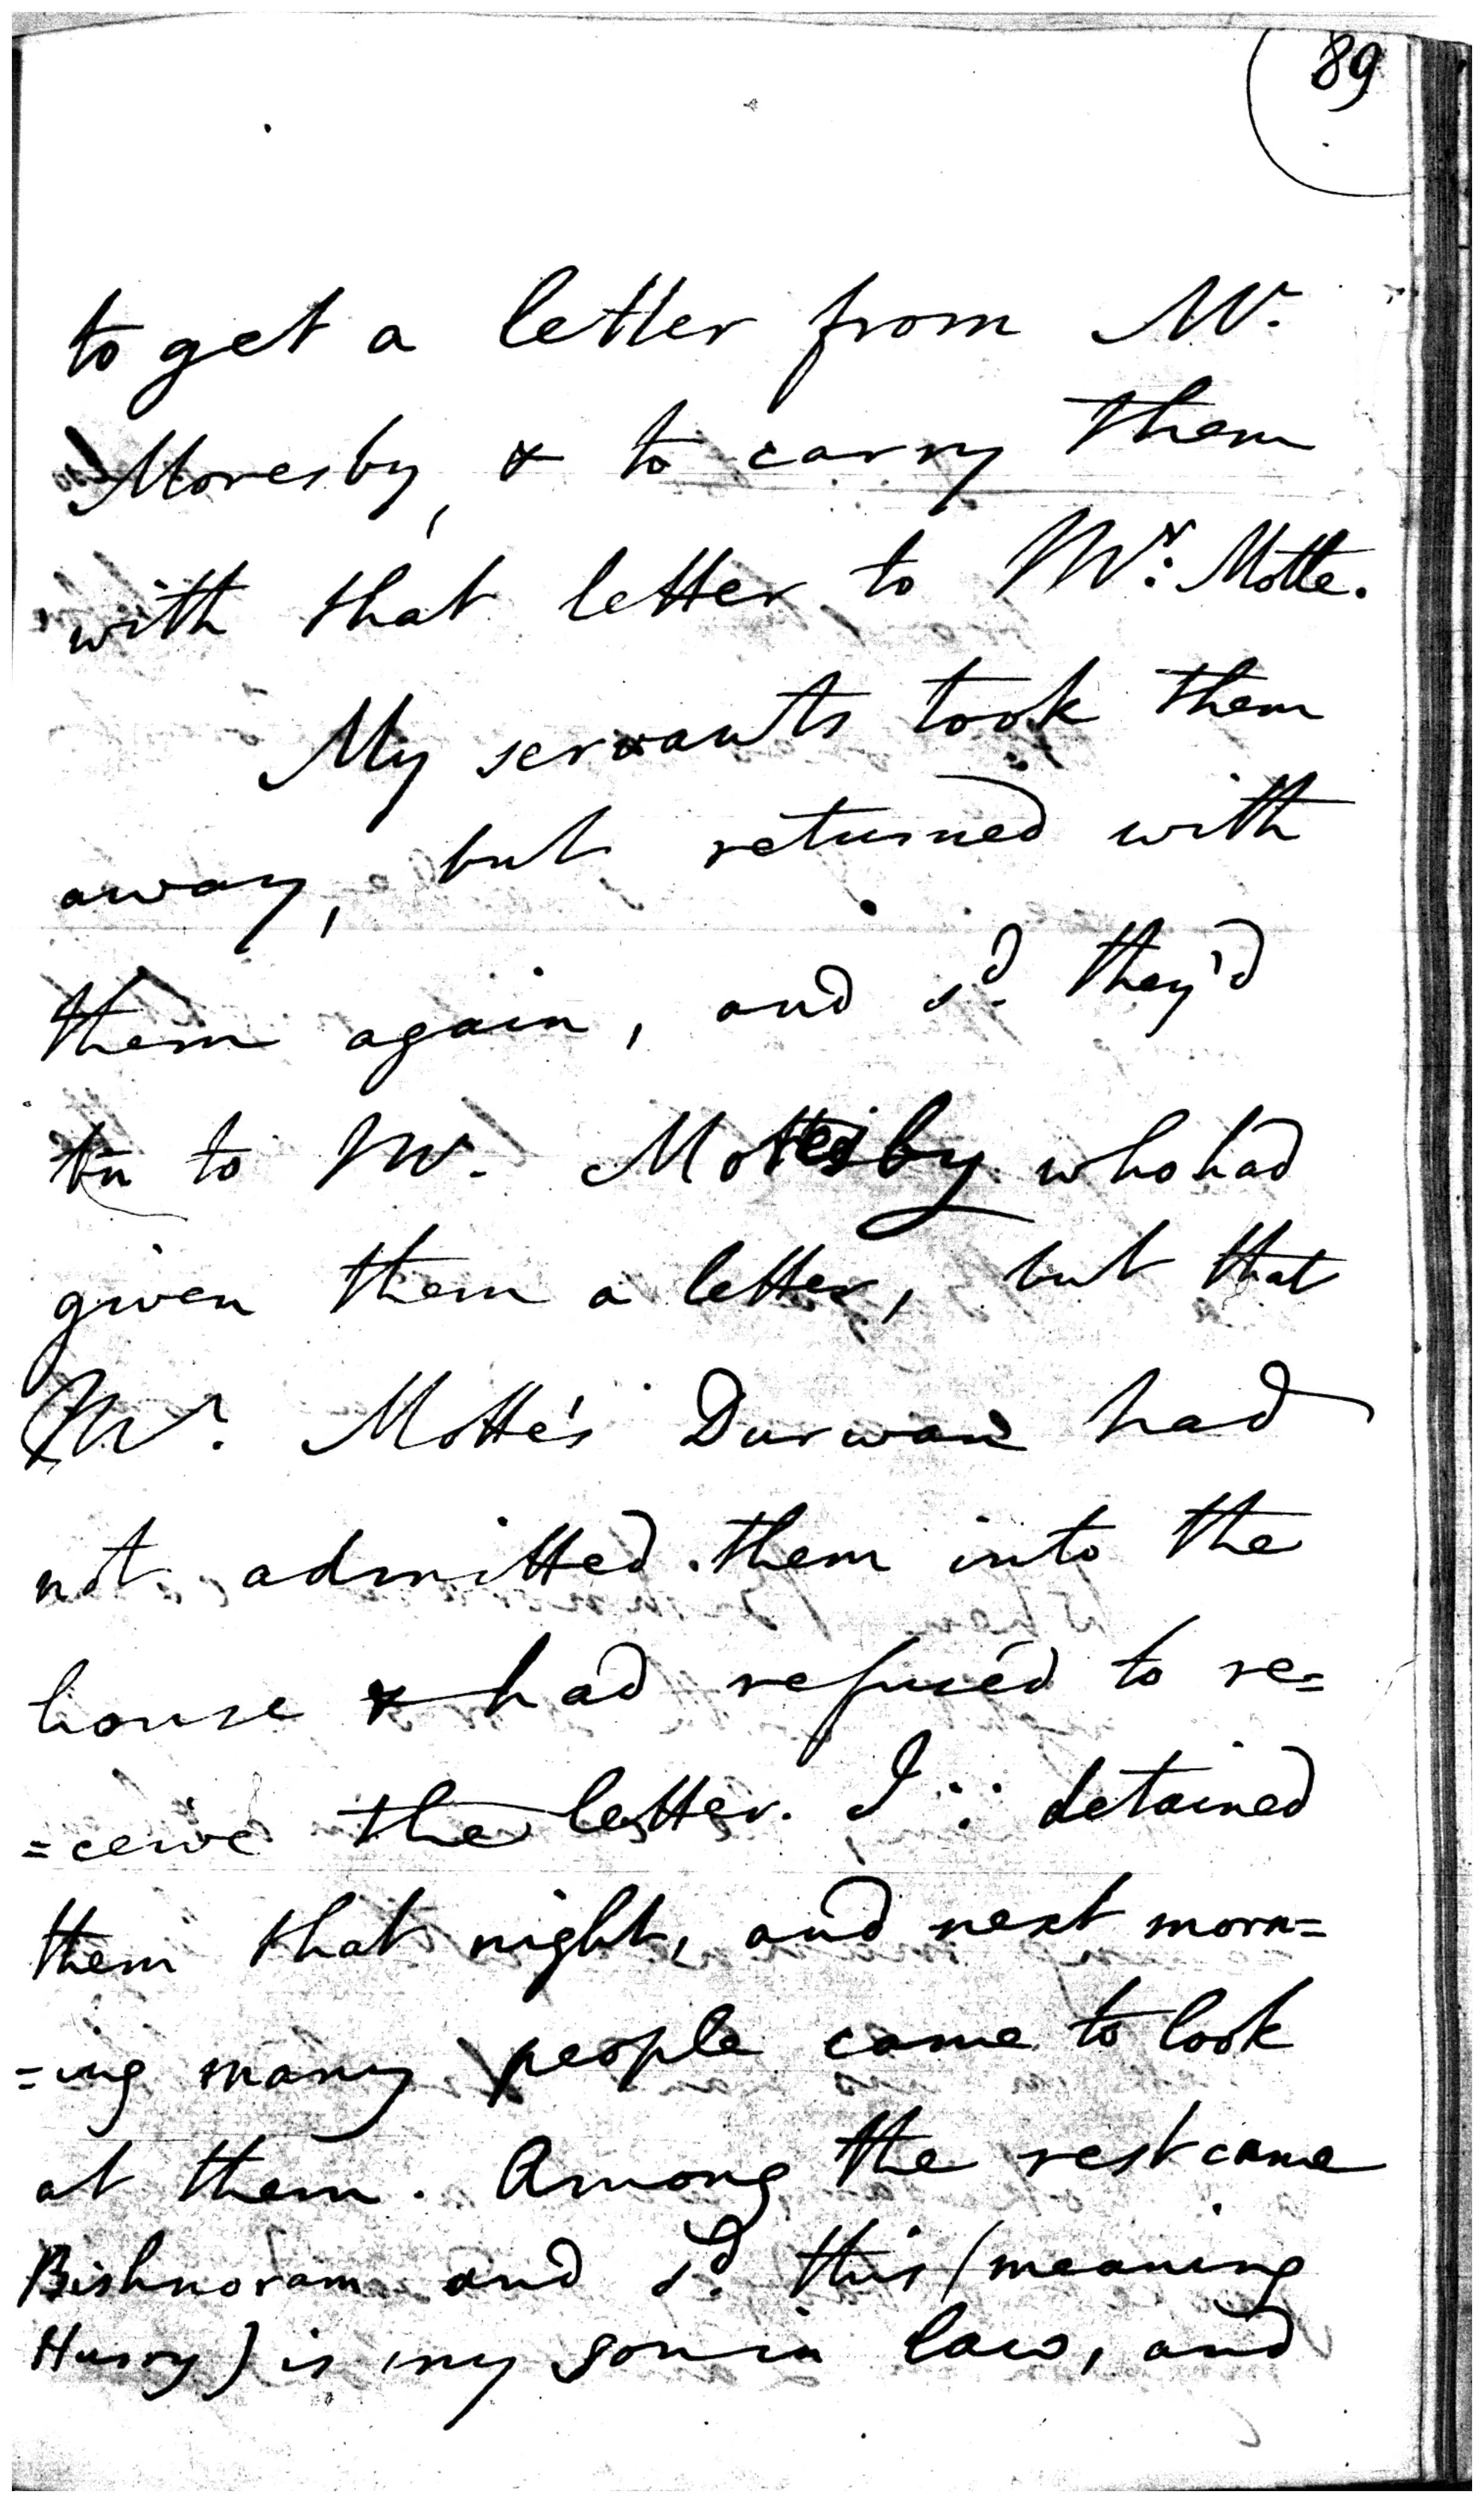 89
to get a letter from Mr.
Moresby, & to carry them
with that letter to Mr. Motte.
My servants took them
away, but returned with
them again, and sd. they'd
bn to Mr. Moresby who had
given them a letter, but that
Mr. Motte's Durwan had
not admitted them into the
house & had refused to re=
=ceive the letter. I ∵ detained
them that night, and next morn=
=ing many people came to look
at them. Among the rest came
Bishnoram and sd. this (meaning
Hurry) is my son in law, and